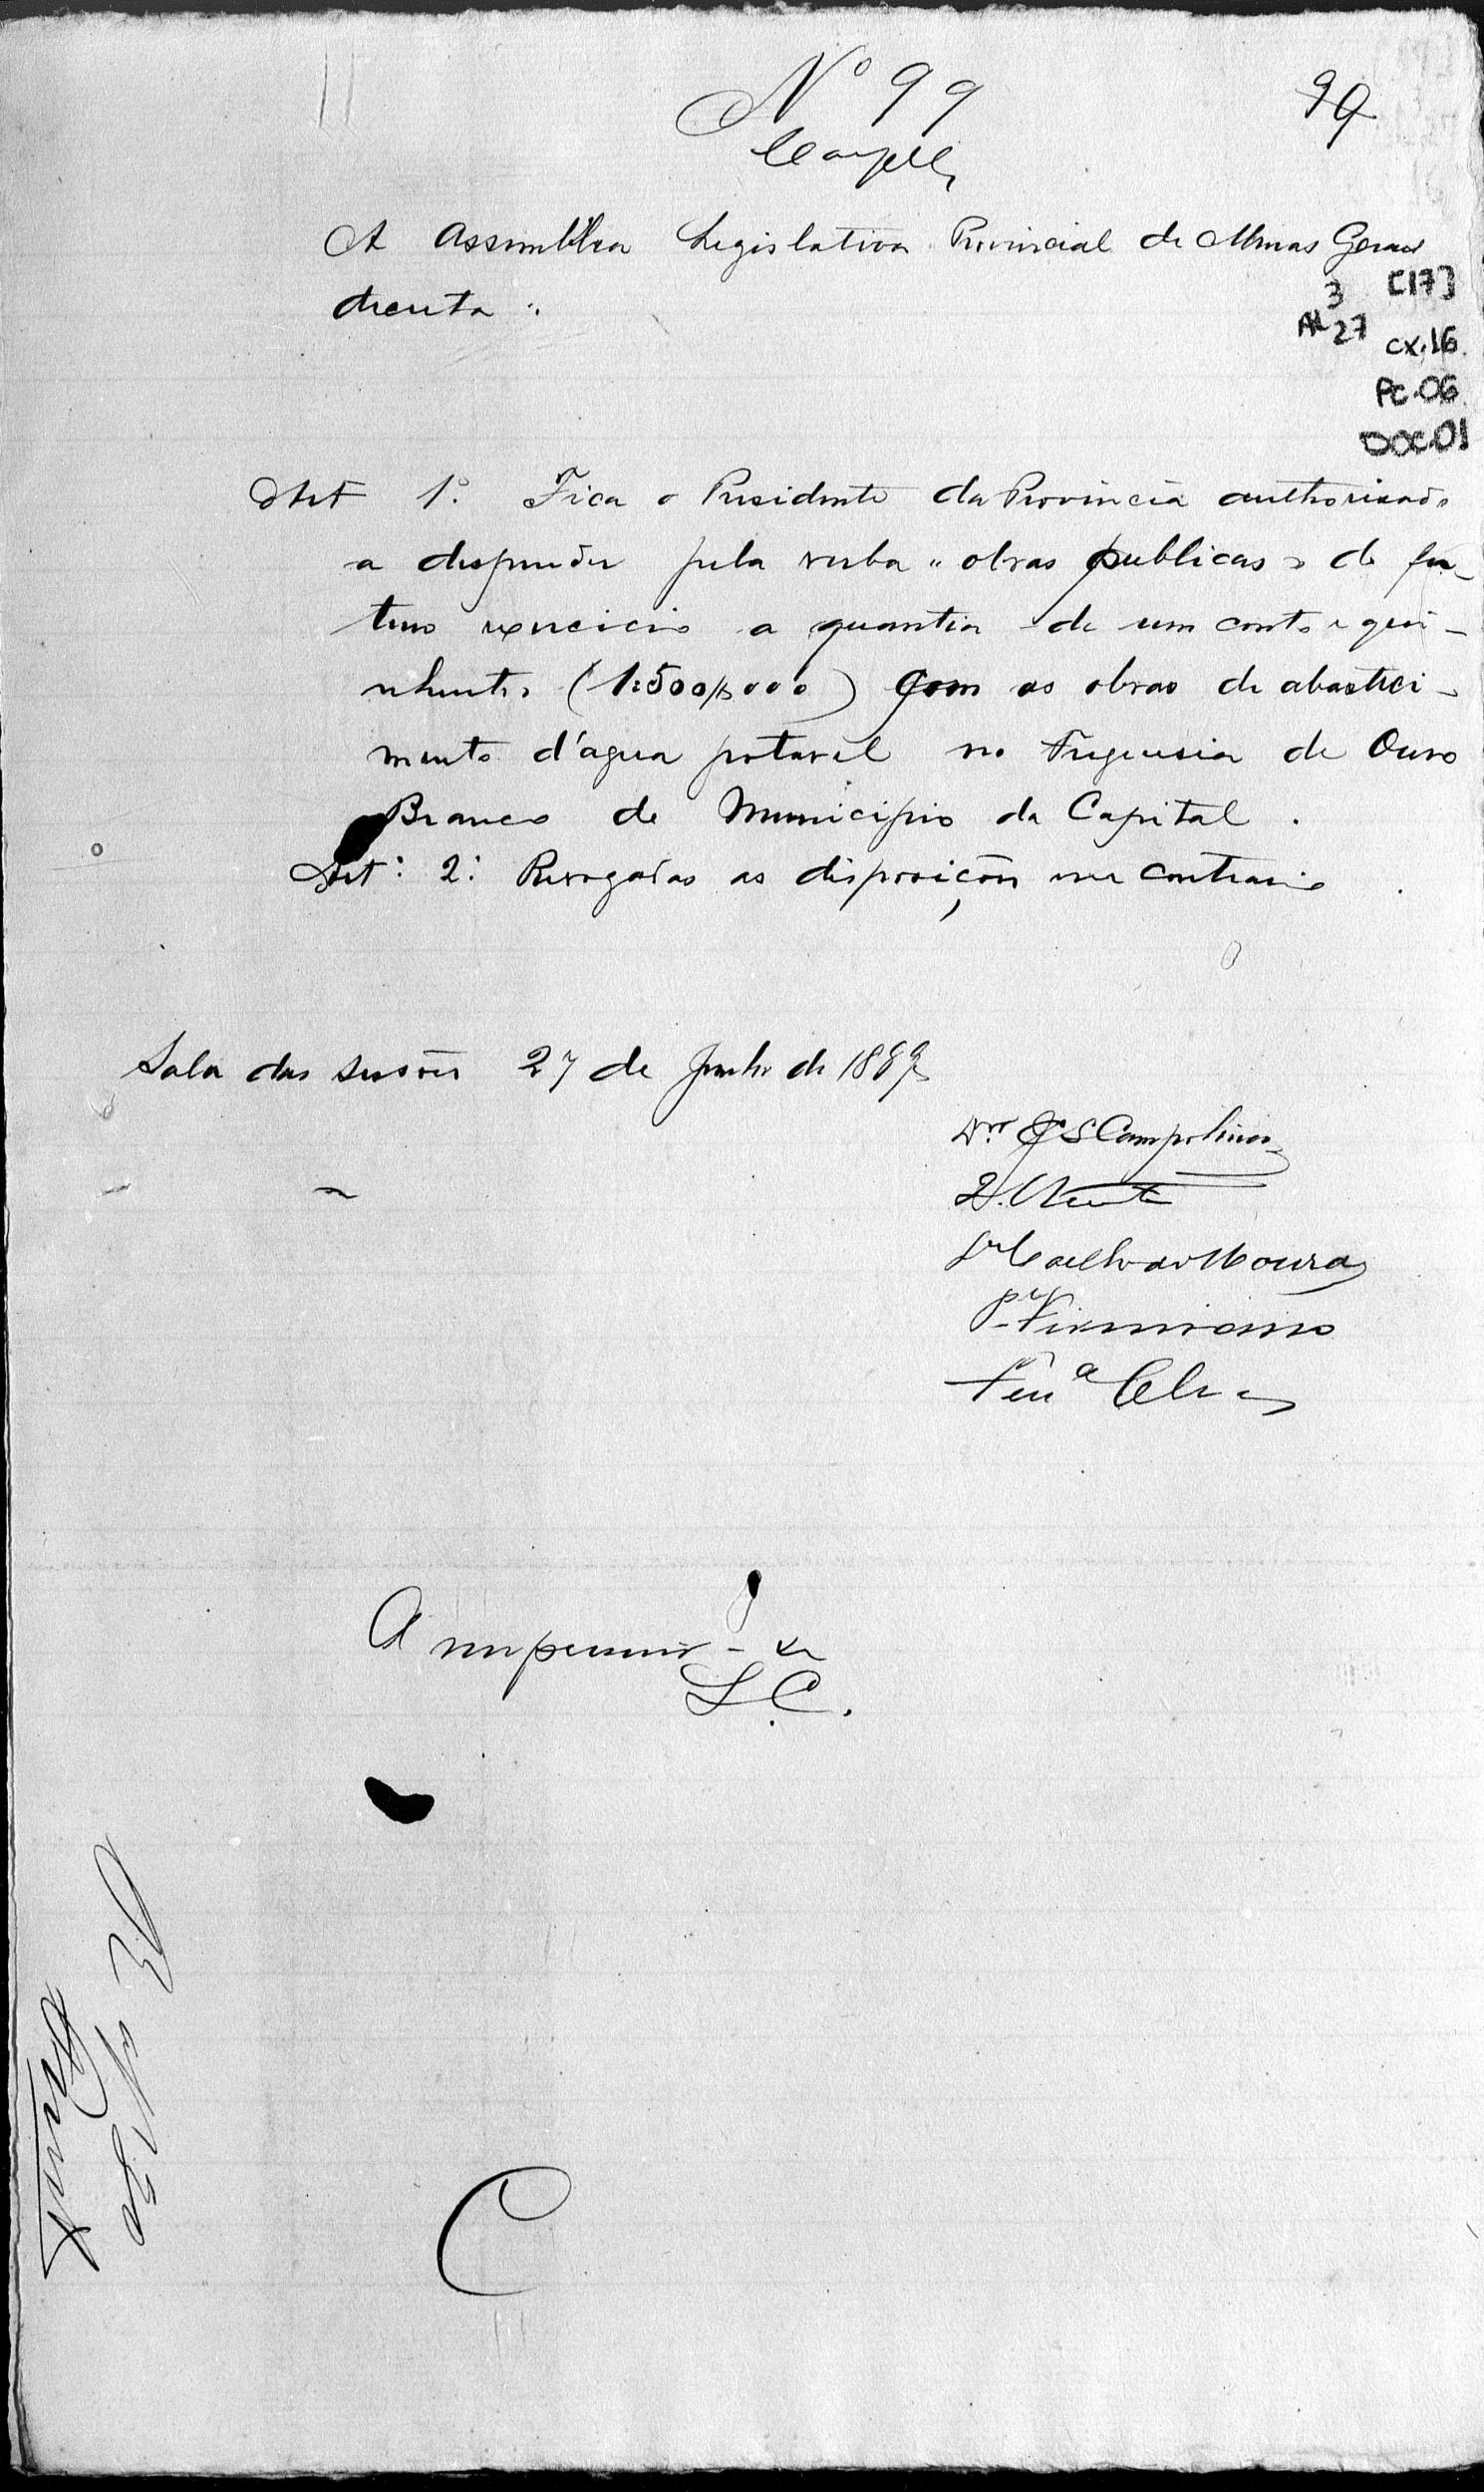 Nº 99
99
A Assembléa Legislativa Provincial de Minas Geraes
decreta :
3 [17]
AL 27
CX.16
PC.06
DOC.01
Art 1º. Fica o Presidente da Provincia authorisado
a despender pela verba "obras publicas" do fu-
turo exercicio a quantia de um conto e qui-
nhentos (1:500$000) com as obras de abasteci-
mento d'agua potavel na Freguesia de Ouro
Branco do Municipio da Capital .
Art: 2: Revogadas as disposições em contrario .
Sala das sessões 27 de Junho de 1889
Dor. J S Campolina
Dr Coelho de Moura
Pe Firmiano
Fera Alves
A imprimir-se
S.C.
C